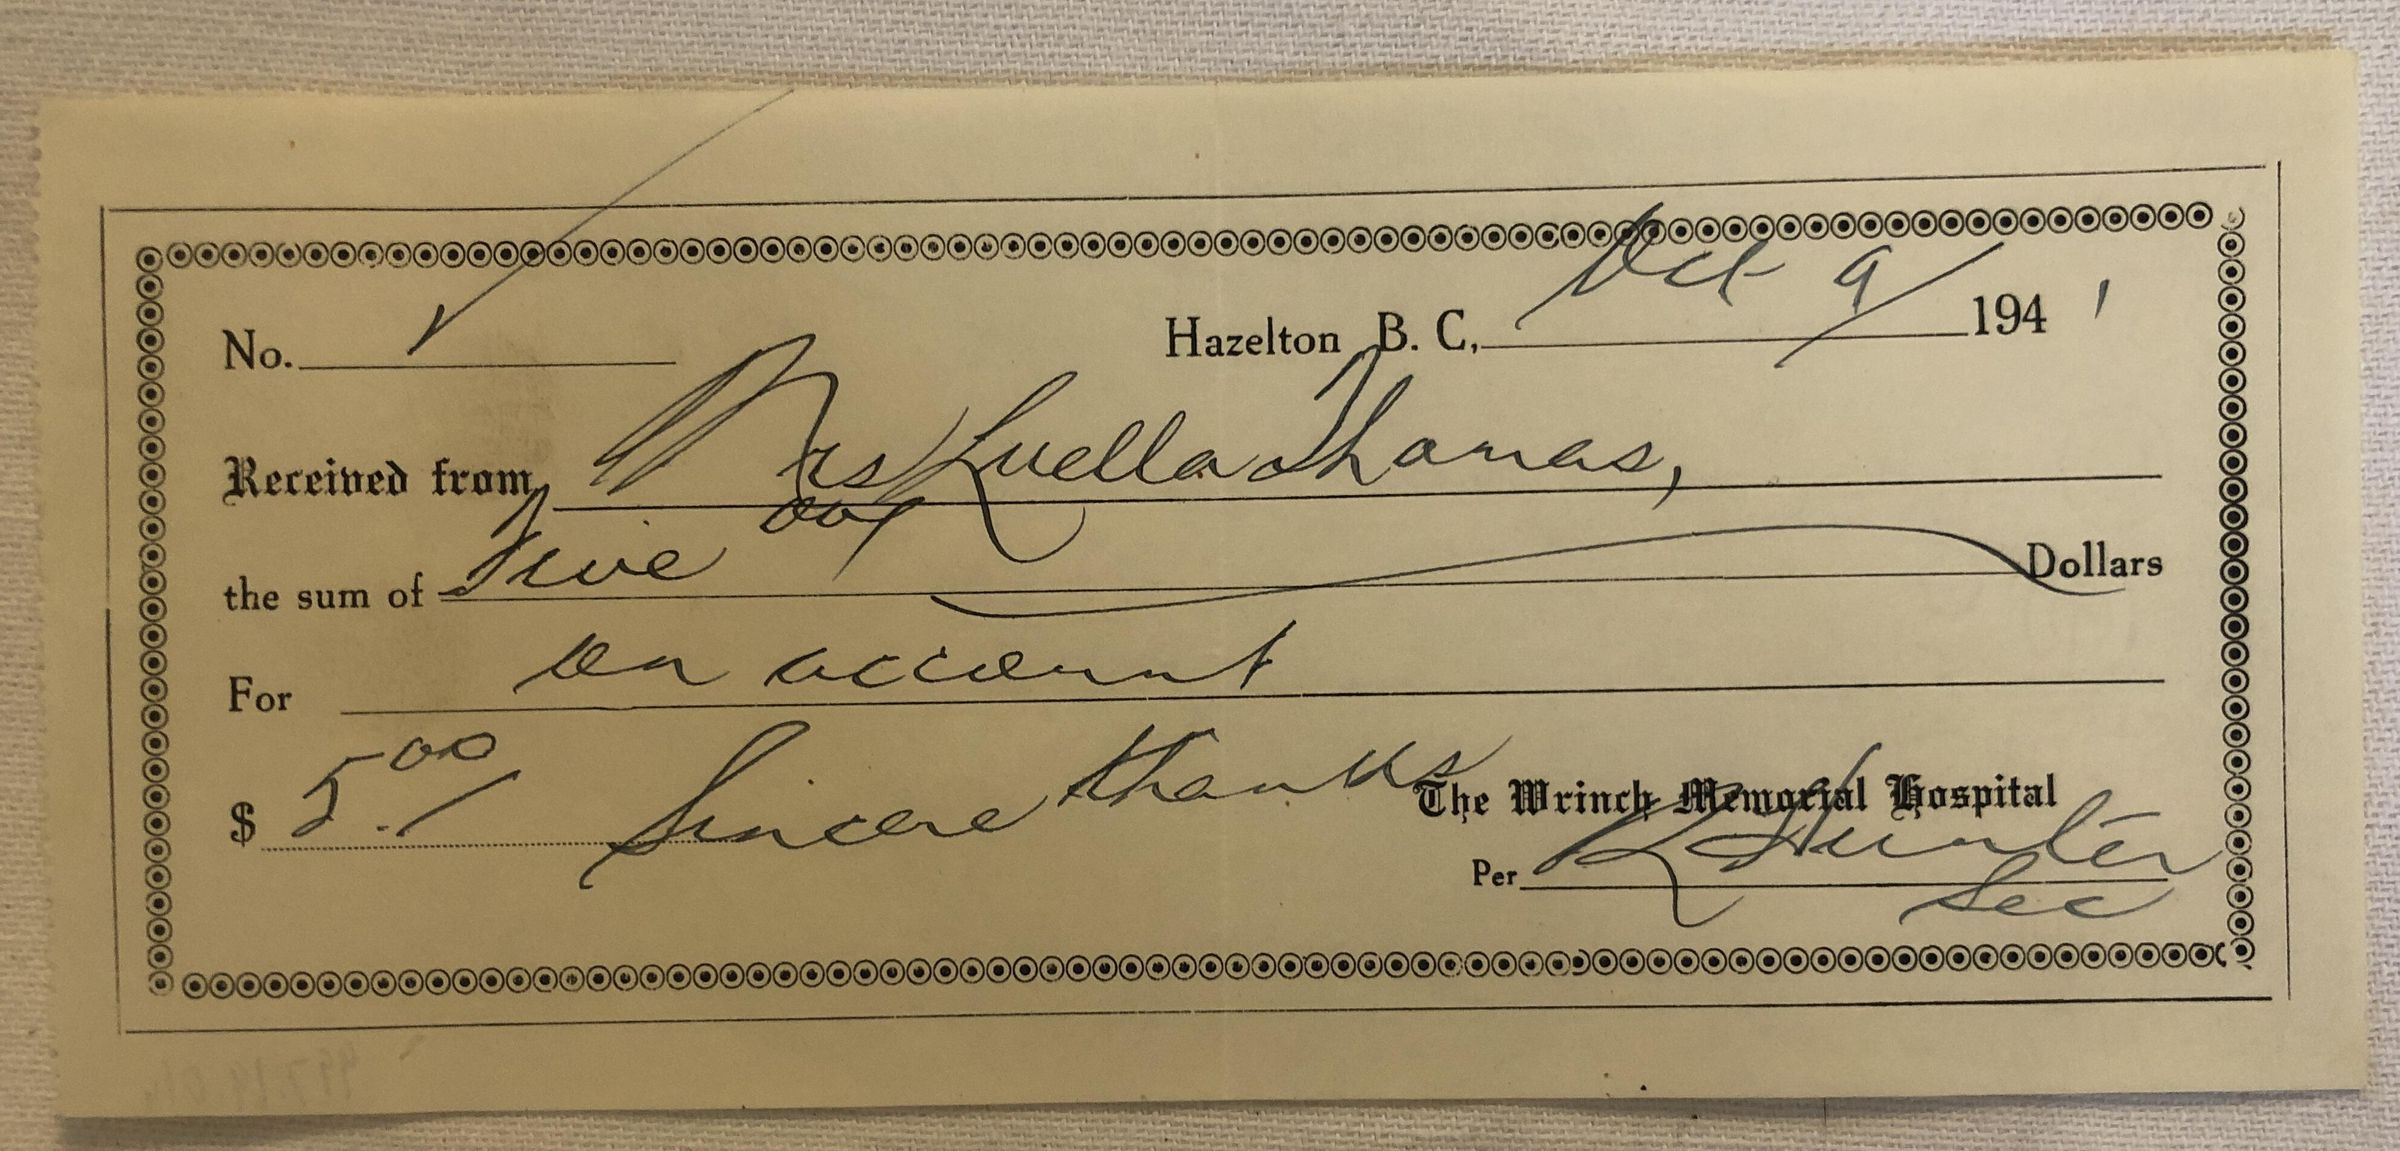 No. ✓
Hazelton B. C., Oct 9/ 1941
Received from Mrs Luella Thomas,
the sum of Five 00/ Dollars
For on account
$ 5.00/ Sincere thanks The Wrinch Memorial Hospital
Per K Hunter
Sec